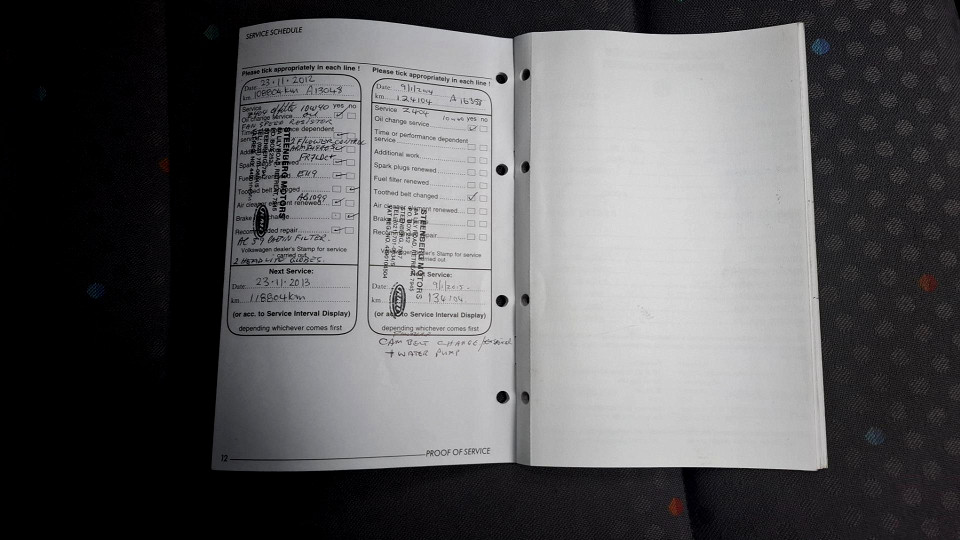 SERVICE SCHEDULE
Please tick appropriately in each line !
Date: 23.11.2012
km 108804km A13048
Service
Z404 oil filter 10w40 yes no
Oil change service
FAN SPEED RESISTOR
dependent
Additional
Spark plugs renewed FR7LDC+
Fuel filter renewed E119
Toothed belt changed
Air cleaner element renewed
Brake change
Recommended repair
CABIN FILTER.
Volkswagen dealer's Stamp for service
carried out
2 HEADLITE GLOBES.
STEENBERG MOTORS
Next Service:
Date: 23.11.2013
km 118804km
(or acc. to Service Interval Display)
depending whichever comes first
Please tick appropriately in each line !
Date: 9/1/2014
km 124104 A 16358
Service Z404 10w40 yes no
Oil change service
Time or performance dependent
service
Additional work
Spark plugs renewed
Fuel filter renewed
Toothed belt changed
Air cleaner element renewed
Brake
repair
Volkswagen dealer's Stamp for service
carried out
STEENBERG MOTORS
RETREAT 7945
P.O. BOX
STEENBERG 7947
Next Service:
Date: 9/1/2015.
km 134104
(or acc. to Service Interval Display)
depending whichever comes first
CAMBELT CHANGE
+ WATER PUMP
12
PROOF OF SERVICE